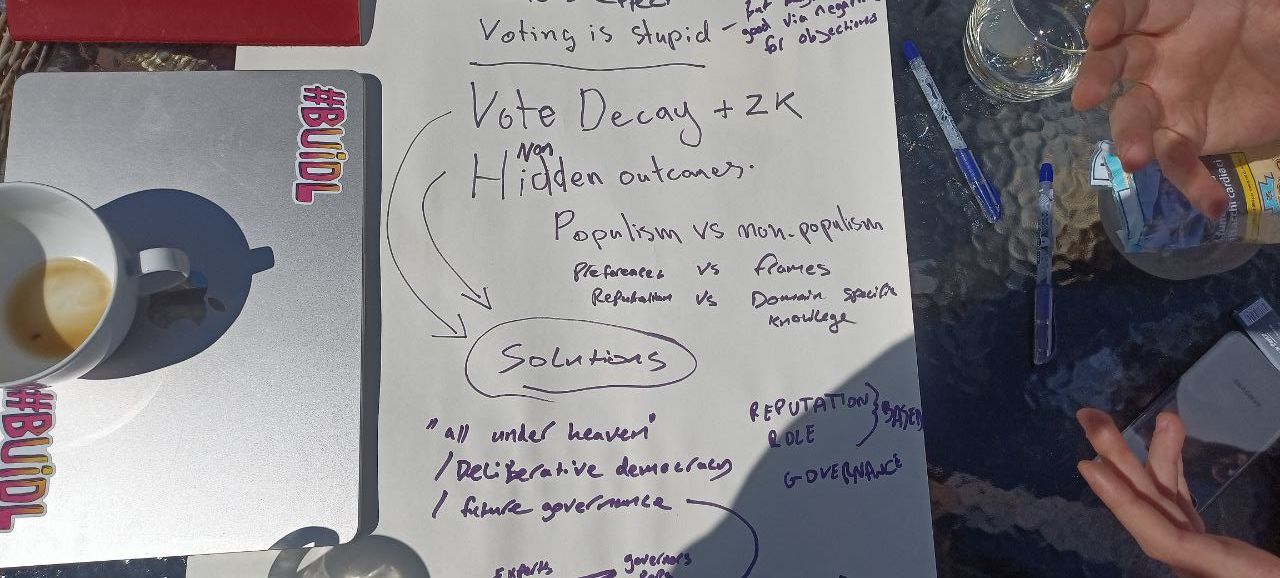 Voting is stupid — good via negativa
for objections
Vote Decay + ZK
Non
Hidden outcomes.
Populism vs non-populism
Preferences vs frames
Reputation vs Domain specific
knowlege
Solutions
"all under heaven"
/ Deliberative democracy
/ future governance
REPUTATION } BASED
ROLE
GOVERNANCE
Experts
governors
#BUiDL
#BUiDL